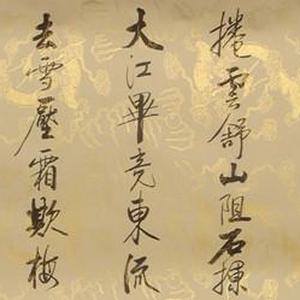 捲雲舒山阻石攔
大江畢竟東流
去雪壓霜欺梅